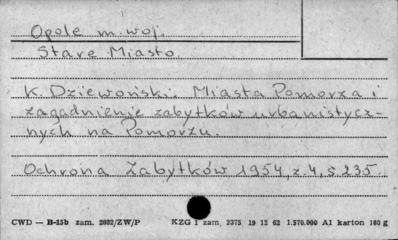 Opole m. woj.
Stare Miasto.
K. Dziewoński. Miasta Pomorza i
zagadnienie zabytków urbanistycz-
nych na Pomorzu.
Ochrona Zabytków 1954, z.4, s 235.
CWD — B-15b zam. 2802/ZW/P KZG 1 zam. 2375 19 12 62 1.570.000 A1 karton 180 g